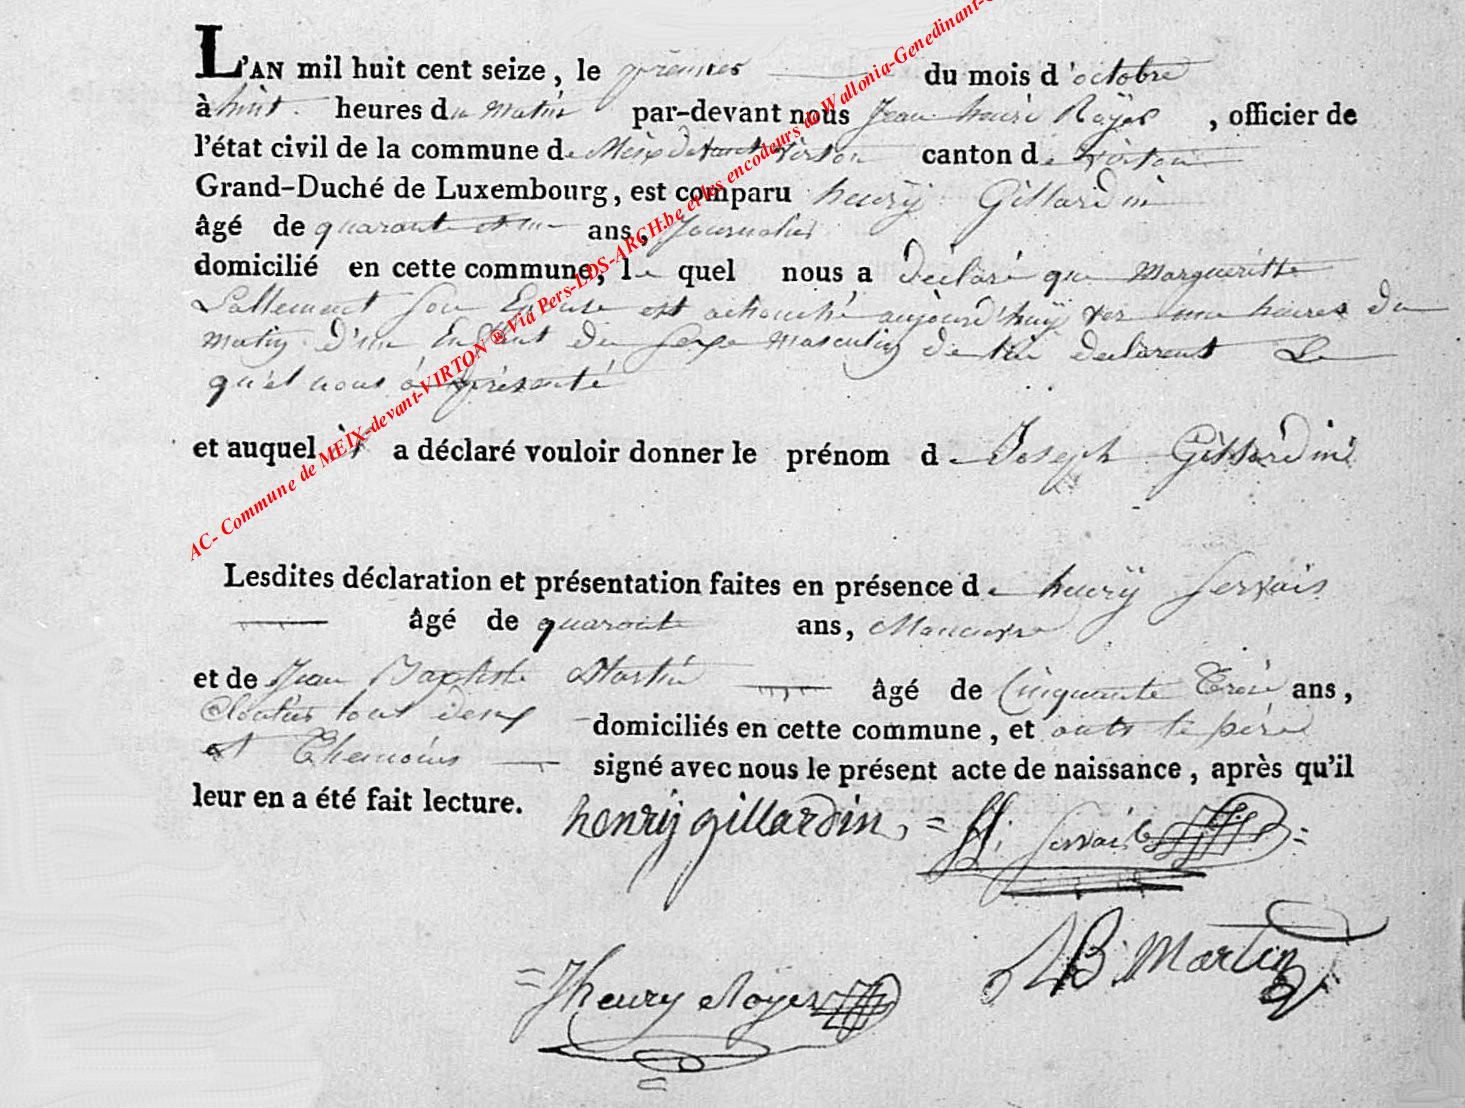 L'AN mil huit cent seize, le premier du mois d'octobre
à huit heures du matin par-devant nous Jean henri Rayër, officier de
l'état civil de la commune de Meix devant virton canton de virton
Grand-Duché de Luxembourg, est comparu henrÿ Gillardin
âgé de quarante et un ans, Journalier
domicilié en cette commune, le quel nous a déclaré que Margueritte
Lallement son Epouse est achouché aujourd'huÿ ver une heures du
matin d'un Enfant du sexe masculin de lui declarent Le
quel nous à présenté
et auquel il a déclaré vouloir donner le prénom de Joseph Gillardin
Lesdites déclaration et présentation faites en présence de henrÿ Servais
âgé de quarante ans, Maneuvre
et de Jean Baptiste Martin âgé de Cinquante Trois ans,
Cloutier tout deux domiciliés en cette commune, et onts le père
et Themoins signé avec nous le présent acte de naissance, après qu'il
leur en a été fait lecture.
henrÿ gillardin, = H. Servais =
= J henry Royer
J B. Martin
AC- Commune de MEIX-devant-VIRTON ® Via Pers-LDS-ARCH.be et les encodeurs de Wallonia-Genedinant-